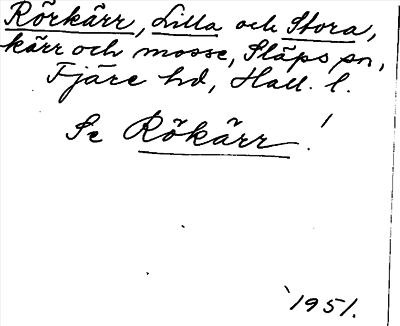 Rörkärr, Lilla och Stora,
kärr och mosse, Släps sn,
Fjäre hd, Hall. l.
Se Rökärr!
1951.